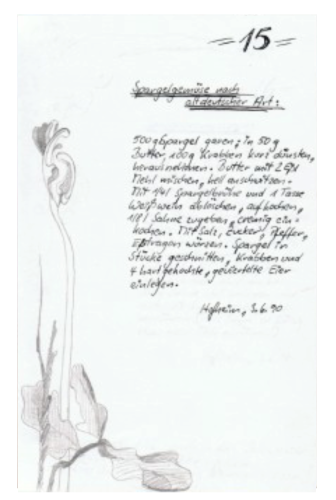 =15=
Spargelgemüse nach
altdeutscher Art:
500g Spargel garen; in 50g
Butter, 100g Krabben kurz dünsten,
herausnehmen. Butter mit 2 Eßl
Mehl mischen, hell anschwitzen.
Mit 1/4l Spargelbrühe und 1 Tasse
Weißwein ablöschen, aufkochen,
1/8l Sahne zugeben, cremig ein-
kochen. Mit Salz, Zucker, Pfeffer,
Estragon würzen. Spargel in
Stücke geschnitten, Krabben und
4 hartgekochte, geviertelte Eier
einlegen.
Hofheim, 3.6.90